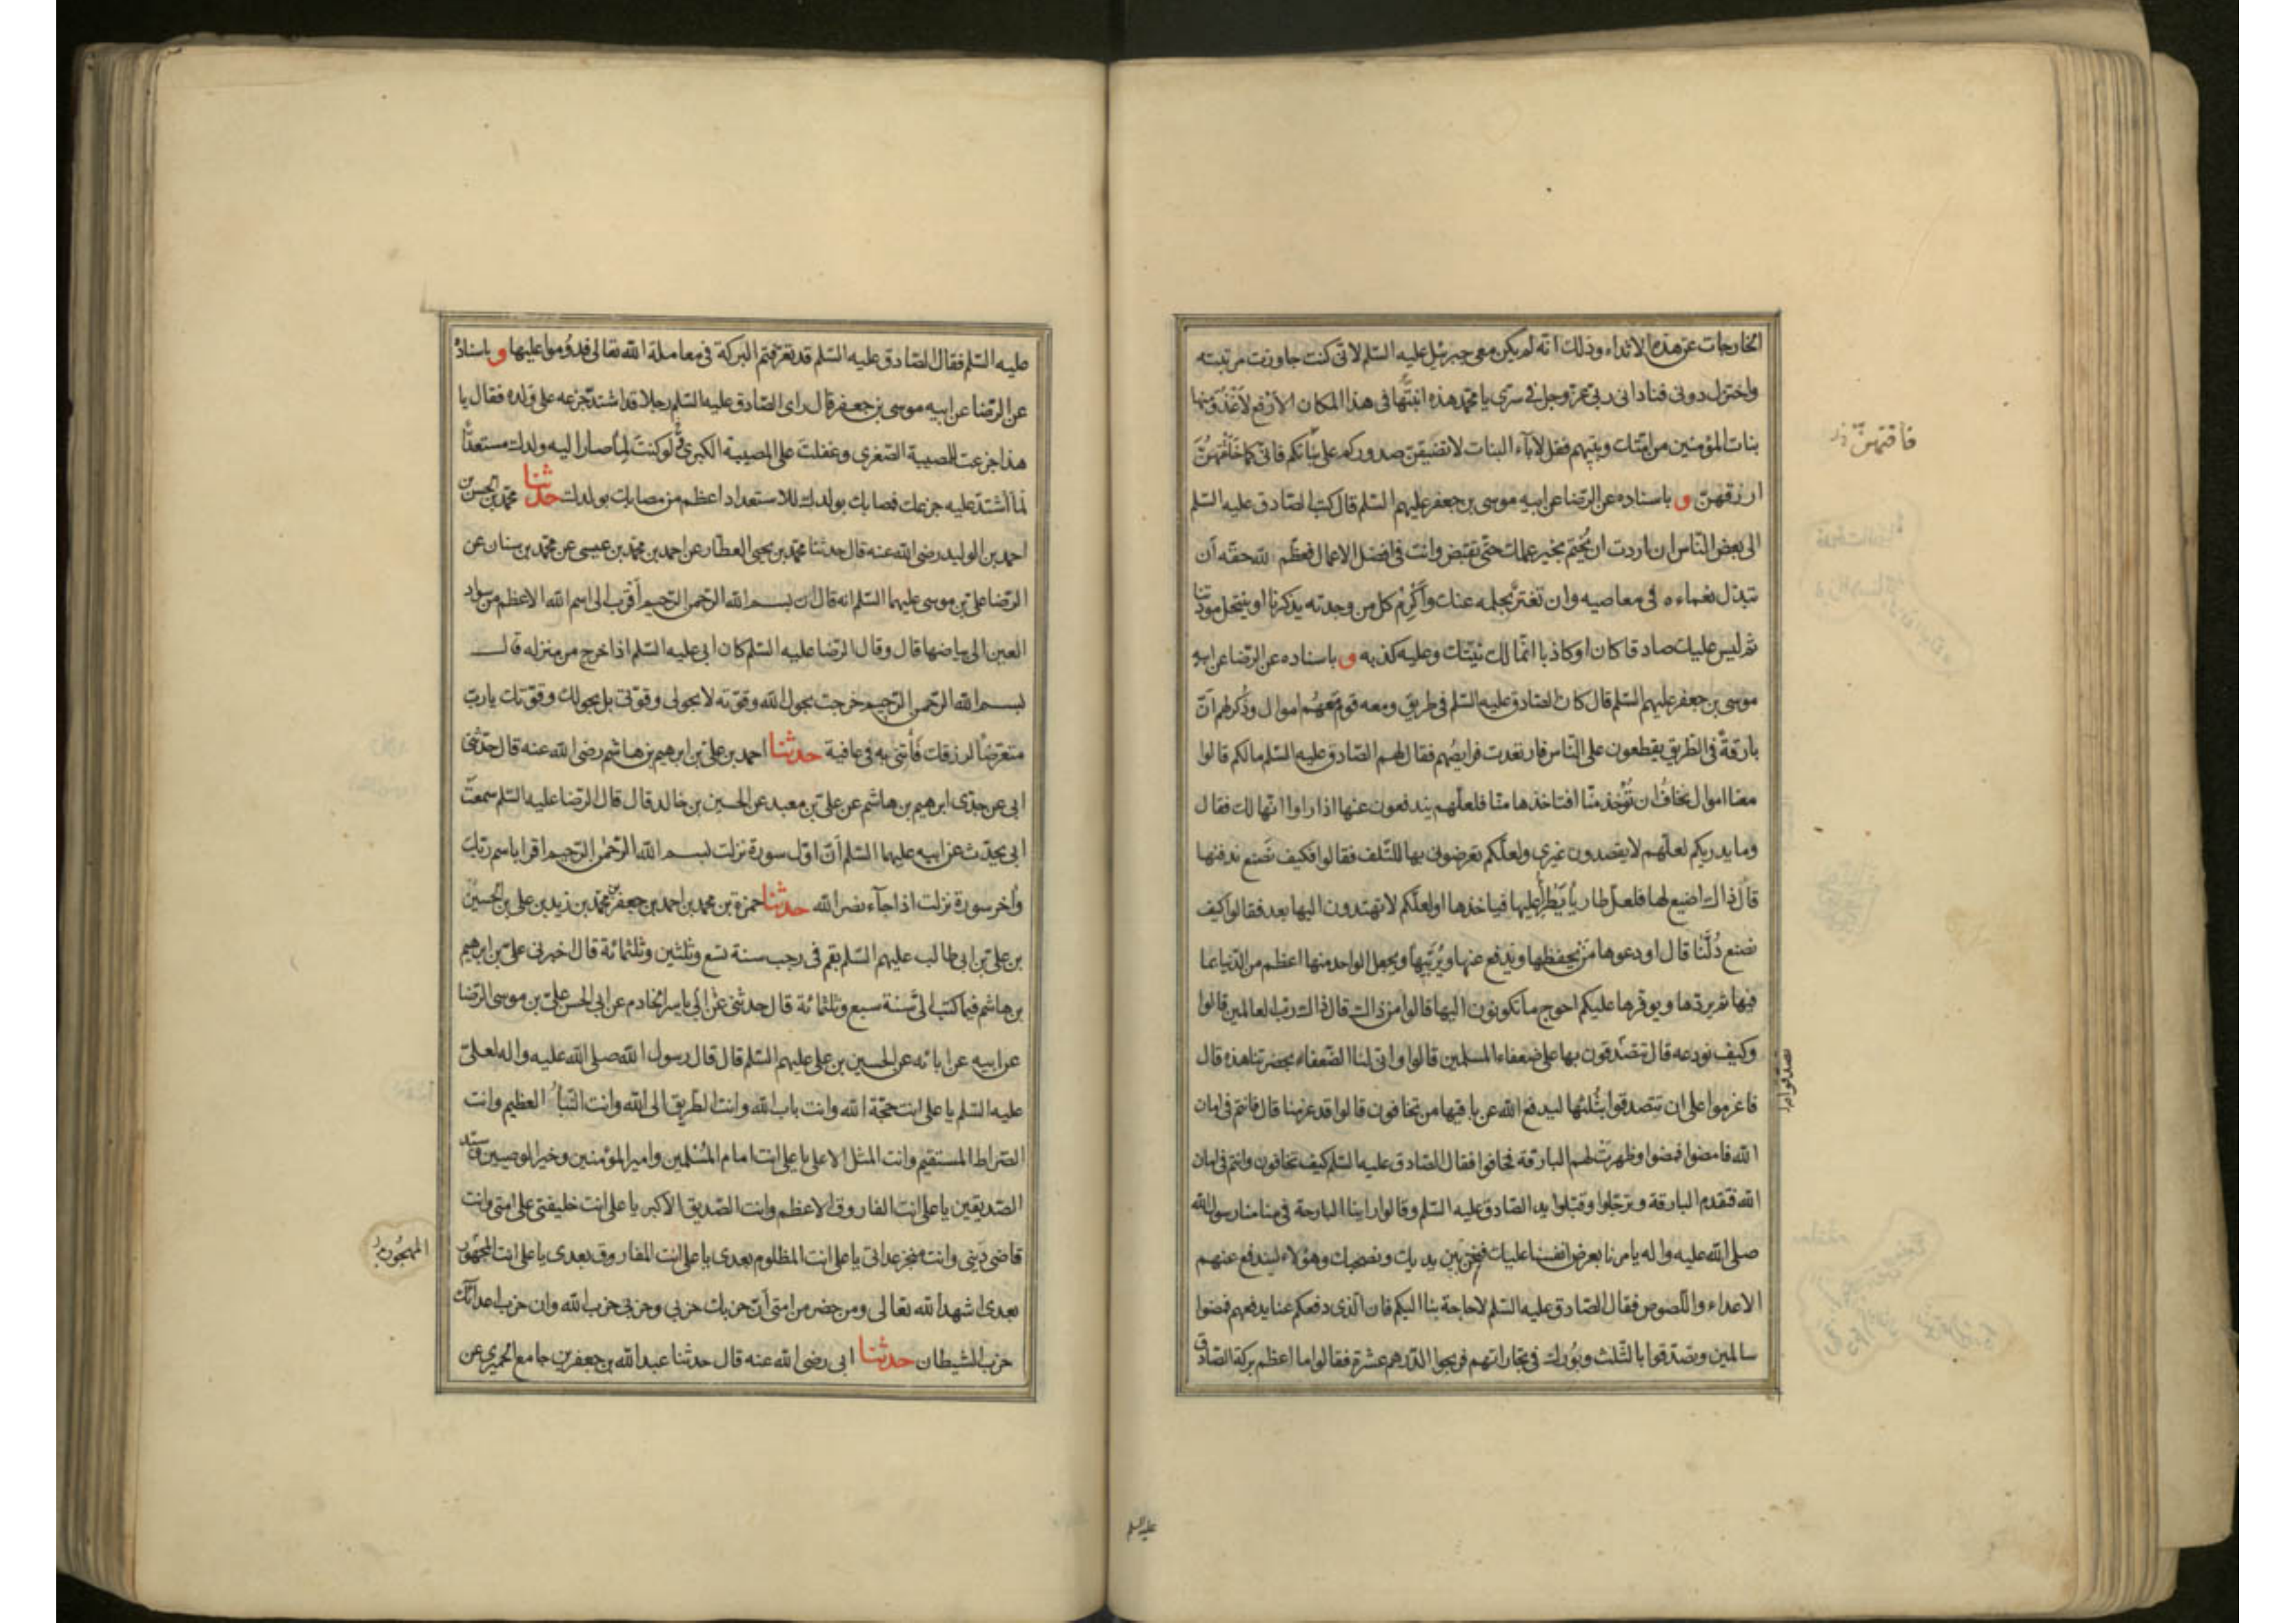 الخارجات عن هذه الاثداء وذلك انه لم يكن معى جبرئيل عليه السّلم لانى كنت جاوزت مرتبته
واختزل دونى فنادانى ربى عزّ وجل فى سرى يا محمّد هذه انبتّها فى هذا المكان الارفع لأغذو منها
بنات المؤمنين من امّتك وبنيهم فقل لآباء البنات لا تضيقنّ صدوركم على بناتكم فانى كما خلقتهنّ
فاقتهنّ
ارزقهنّ و باسناده عن الرّضا عن ابيه موسى بن جعفر عليهم السّلم قال كتب الصّادق عليه السّلم
الى بعض النّاس ان اردت ان يُختم بخير عملك حتّى تقبض وانت فى افضل الاعمال فعظّم لله حقّه أن
تبذل نعماءه فى معاصيه وان تغترّ بحلمه عنك وأكرِم كل من وجدته يذكرنا او ينتحل مودتنا
ثم ليس عليك صادقا كان او كاذبا انّما لك نيّتك وعليه كذبه و باسناده عن الرّضا عن ابيه
موسى بن جعفر عليهم السّلم قال كان الصّادق عليه السّلم فى طريق ومعه قوم معهُم اموال وذُكر لهم أنّ
بارقةً فى الطّريق يقطعون على النّاس فارتعدت فرايصُهم فقال لهم الصّادق عليه السّلم مالكم قالوا
معنا اموال نخافُ ان تُؤخذ منّا افتاخذها منّا فلعلّهم يندفعون عنها اذا راوا انّها لك فقال
وما يدريكم لعلّهم لا يقصدون غيرى ولعلّكم تعرضونى بها للتّلف فقالوا فكيف نصنع ندفنها
قال ذاك اضيع لها فلعل طاريًا يَطرأ عليها فياخذها او لعلّكم لا تهتدون اليها بعد فقالوا كيف
نصنع دُلّنا قال اودعوها مَن يحفظها ويدفع عنها ويُربّيها ويجعل الواحد منها اعظم من الدّنيا بما
فيها ثم يردّها ويوفرها عليكم احوج ما تكونون اليها قالوا من ذاك قال ذاك ربّ العالمين قالوا
وكيف نودعه قال تتصدّقون بها على ضعفاء المسلمين قالوا وانى لنا الضّعفاء بحضرتنا هذه قال
فاعزموا على ان تتصدقوا بثُلثها ليدفع الله عن باقيها من تخافون قالوا قد عزمنا قال فانتم فى امان
الله فامضوا فمضوا وظهرت لهم البارقة فخافوا فقال الصّادق عليه السّلم كيف تخافون وانتم فى امان
الله فتقدم البارقة وترجّلوا وقبّلوا يد الصّادق عليه السّلم وقالوا راينا البارحة فى منامنا رسول الله
صلى الله عليه واله يامرنا بعرض انفسنا عليك فنحن بين يديك ونصحبك وهؤلاء ليندفع عنهم
الاعداء واللّصوص فقال الصّادق عليه السّلم لا حاجة بنا اليكم فان الّذى دفعكم عنا يدفعهم فمضوا
سالمين وتصدّقوا بالثّلث وبُورك فى تجاراتهم فربحوا الدّرهم عشرة فقالوا ما اعظم بركة الصّادق
عليه السلم
عليه السّلم فقال الصّادق عليه السّلم قد تعرّفتم البركة فى معاملة الله تعالى فدُوموا عليها و باسناده
عن الرّضا عن ابيه موسى بن جعفر قال راى الصّادق عليه السّلم رجلا قد اشتدّ جزعه على ولده فقال يا
هذا جزعت للمصيبة الصّغرى وغفلت على المصيبة الكبرى لو كنت لما صار اليه ولدك مستعدًّا
لما اشتدّ عليه جزعك فمصابك بولدك للاستعداد اعظم من مصابك بولدك حدّثنا محمّد بن الحسن بن
احمد بن الوليد رضى الله عنه قال حدثنا محمّد بن يحيى العطّار عن احمد بن محمّد بن عيسى عن محمّد بن سنان عن
الرّضا على بن موسى عليهما السّلم انه قال ان بسم الله الرّحمن الرّحيم أقرب الى اسم الله الاعظم من سواد
العين الى بياضها قال وقال الرّضا عليه السّلم كان ابى عليه السّلم اذا خرج من منزله قال
بسم الله الرّحمن الرّحيم خرجت بحول الله وقوّته لا بحولى وقوّتى بل بحولك وقوّتك يا ربّ
متعرّضًا لرزقك فأتنى به فى عافية حدثنا احمد بن علىّ بن ابرهيم بن هاشم رضى الله عنه قال حدّثنى
ابى عن جدّى ابرهيم بن هاشم عن علىّ بن معبد عن الحسين بن خالد قال قال الرّضا عليه السّلم سمعت
ابى يحدّث عن ابيه عليهما السّلم أنّ اوّل سورة نزلت بسم الله الرّحمن الرّحيم اقرا باسم ربّك
وآخر سورة نزلت اذا جآء نصر الله حدثنا حمزة بن محمد بن احمد بن جعفر بن محمّد بن زيد بن على بن الحسين
بن علىّ بن ابى طالب عليهم السّلم بقم فى رجب سنة تسع وثلثين وثلثمائة قال اخبرنى على بن ابرهيم
بن هاشم فيما كتب الىّ سنة سبع وثلثمائة قال حدثنى عن ابى ياسر الخادم عن ابى الحسن علىّ بن موسى الرّضا
عن ابيه عن ابائه عن الحسين بن على عليهم السّلم قال قال رسول الله صلى الله عليه واله لعلىّ
عليه السّلم يا على انت حجّة الله وانت باب الله وانت الطّريق الى الله وانت النّبأ العظيم وانت
الصّراط المستقيم وانت المثل الاعلى يا على انت امام المُسْلمين وامير المؤمنين وخير الوصيين وسيّد
الصّديقين يا على انت الفاروق الاعظم وانت الصّديق الاكبر يا على انت خليفتى على امتى وانت
قاضى دَينى وانت منجز عداتى يا على انت المظلوم بعدى يا على انت المفارق بعدى يا على انت المحجور
المهجُور
بعدى اشهد الله تعالى ومن حضر من امتى أنّ حزبك حزبى وحزبى حزب الله وان حزب اعدائك
حزب الشيطان حدثنا ابى رضى الله عنه قال حدثنا عبد الله بن جعفر بن جامع الحميرى عن